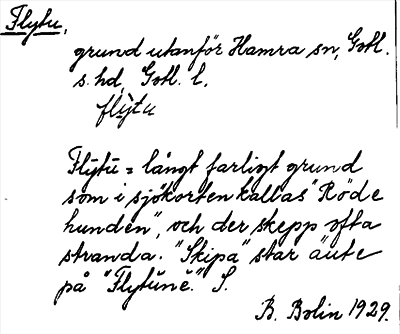 Flytu,
grund utanför Hamra sn, Gotl.
s. hd, Gotl. l.
flỳtu
Flȳtū = långt farligt grund
som i sjökorten kallas "Röde
hunden", och der skepp ofta
stranda. "Skipä" star äute
på "Flytŭnĕ". S.
B. Bolin 1929.